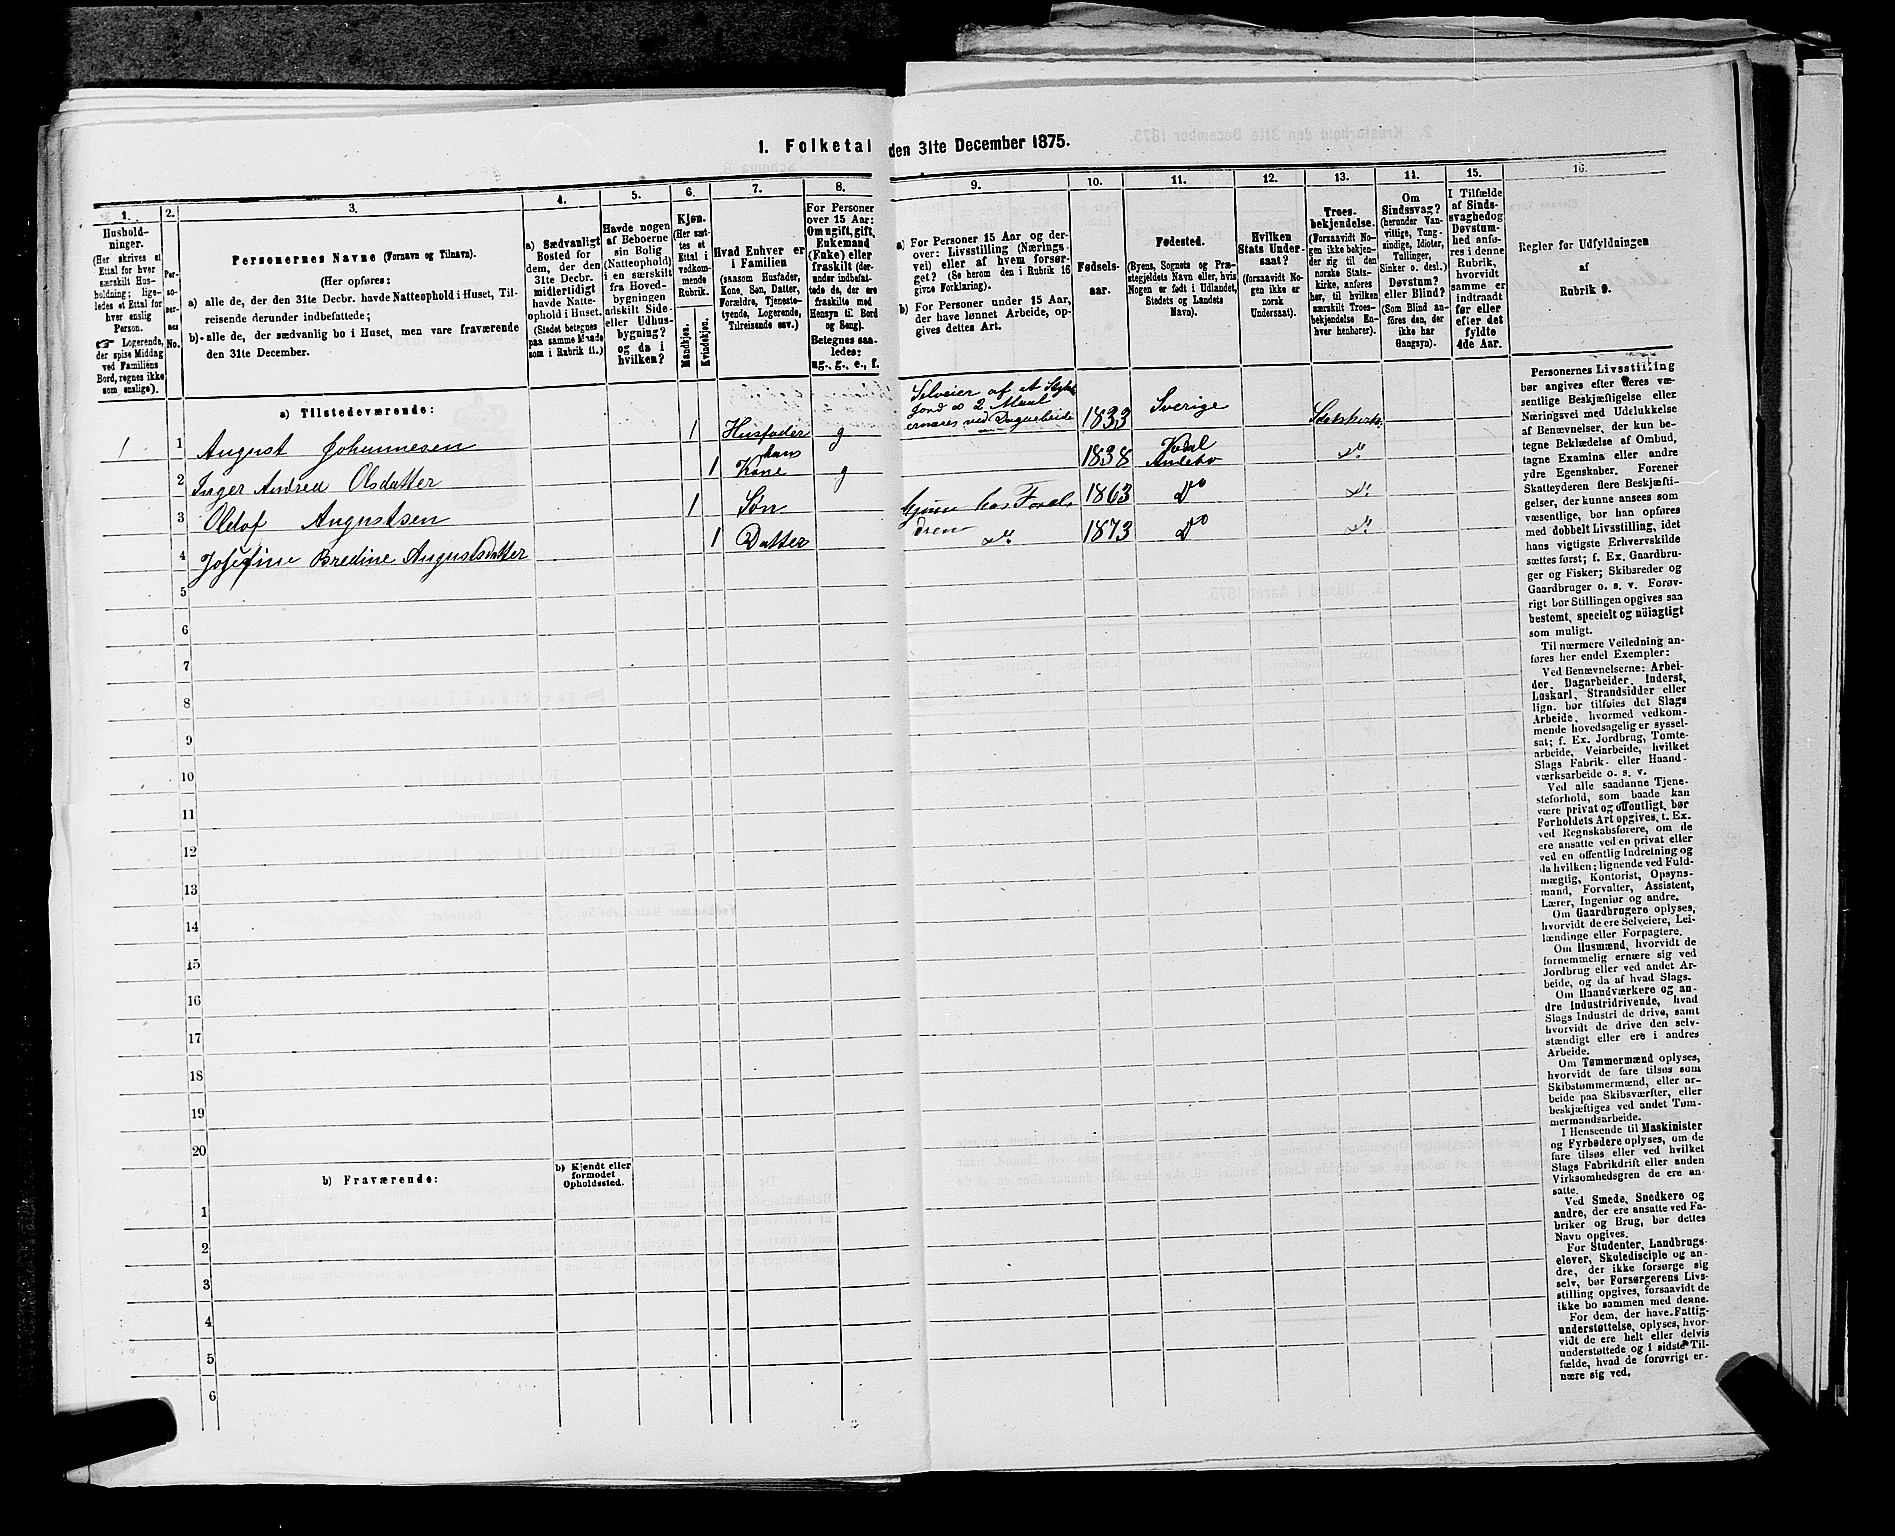 1. Folketal den 31te December 1875.
1.
Hushold-
ninger.
(Her skrives et
Ettal for hver
særskilt Hus-
holdning; lige-
ledes et Ettal for
hver enslig
Person.
☞ Logerende,
der spise Middag
ved Familiens
Bord, regnes ikke
som enslige).
2.
Per-
so-
ner-
nes
No.
3.
Personernes Navne (Fornavn og Tilnavn).
(Her opføres:
a) alle de, der den 31te Decbr. havde Natteophold i Huset, Til-
reisende derunder indbefattede;
b) alle de, der sædvanlig bo i Huset, men vare fraværende
den 31te December.
4.
a) Sædvanligt
Bosted for
dem, der den
31te Decbr.
midlertidigt
havde Natte-
ophold i Huset.
(Stedet betegnes
paa samme Maade
som i Rubrik 11.)
5.
Havde nogen
af Beboerne
sin Bolig
(Natteophold)
i en særskilt
fra Hoved-
bygningen
adskilt Side-
eller Udhus-
bygning?
og da i
hvilken?
6.
Kjøn.
(Her sæt-
tes et
Ettal i
vedkom-
mende
Rubrik.
Mandkjøn.
Kvindekjøn.
7.
Hvad Enhver er
i Familien
(saasom Husfader,
Kone, Søn, Datter,
Forældre, Tjeneste-
tyende, Logerende,
Tilreisende osv.)
8.
For Personer
over 15 Aar:
Om ugift, gift,
Enkemand
(Enke) eller
fraskilt (der-
under indbefat-
tede de, der ere
fraskilte med
Hensyn til Bord
og Seng).
Betegnes saa-
ledes:
ug., g., e., f.
9.
a) For Personer 15 Aar og der-
over: Livsstilling (Nærings-
vei) eller af hvem forsør-
get? (Se herom den i Rubrik 16
givne Forklaring).
b) For Personer under 15 Aar,
der have lønnet Arbeide, op-
gives dettes Art.
10.
Fødsels-
aar.
11.
Fødested.
(Byens, Sognets og Præ-
stegjeldets Navn eller, hvis
Nogen er født i Udlandet,
Stedets og Landets
Navn).
12.
Hvilken
Stats Under-
saat?
(forsaavidt No-
gen ikke er
norsk
Undersaat).
13.
Troes-
bekjendelse.
(Forsaavidt No-
gen ikke bekjen-
der sig til den
norske Stats-
kirke, anføres
her, til hvilken
særskilt Troes-
bekjendelse En-
hver henhører).
14.
Om
Sindssvag?
(herunder Van-
vittige, Tung-
sindige, Idioter,
Tullinger,
Sinker o. desl.)
Døvstum?
eller Blind?
(Som Blind an-
føres den, der
ikke har
Gangsyn).
15.
I Tilfælde
af Sinds-
svaghed og
Døvstum-
hed anfø-
res i denne
Rubrik,
hvorvidt
samme er
indtraadt
før eller
efter det
fyldte
4de Aar.
16.
Regler for Udfyldningen
af
Rubrik 9.
a) Tilstedeværende:
1 1 August Johannesen 1 Husfader g Selveier af et Stykke Jord 2 Maal ernæres ved Dagarbeide 1833 Sverige Statskirk.
2 Inger Andrea Olsdatter 1 hans Kone g 1838 Kodal Andebo do
3 Oletof Augustsen 1 Søn hjemme hos Forældrene 1863 Do do
4 Josefine Bredine Augustsdatter 1 Datter do 1873 Do do
5
6
7
8
9
10
11
12
13
14
15
16
17
18
19
20
b) Fraværende:
b) Kjendt eller
formodet
Opholdssted.
1
2
3
4
5
6
Personernes Livsstilling
bør angives efter deres væ-
sentlige Beskjæftigelse eller
Næringsvei med Udelukkelse
af Benævnelser, der kun be-
tegne Beklædelse af Ombud,
tagne Examina eller andre
ydre Egenskaber. Forener
Skatteyderen flere Beskjæfti-
gelser, der kunne ansees som
væsentlige, bør han opføres
med dobbelt Livsstilling, idet
hans vigtigste Erhvervskilde
sættes først; f. Ex. Gaardbru-
ger og Fisker; Skibsreder og
Gaardbruger o. s. v. Forøv-
rigt bør Stillingen opgives saa
bestemt, specielt og nöiagtigt
som muligt.
Til nærmere Veiledning an-
føres her endel Exempler:
Ved Benævnelserne: Arbei-
der, Dagarbeider, Inderst,
Løskarl, Strandsidder eller
lign. bør tilføies det Slags
Arbeide, hvormed vedkom-
mende hovedsagelig er syssel-
sat; f. Ex. Jordbrug, Tomte-
arbeide, Veiarbeide, hvilket
Slags Fabrik- eller Haand-
værksarbeide o. s. v.
Ved alle saadanne Tjene-
steforhold, som baade kan
være privat og offentligt, bør
Forholdets Art opgives, t. Ex.
ved Regnskabsførere, om de
ere ansatte ved en privat eller
ved en offentlig Indretning og
da hvilken; lignende ved Fuld-
mægtig, Kontorist, Opsyns-
mand, Forvalter, Assistent,
Lærer, Ingeniør og andre.
Om Gaardbrugere oplyses,
hvorvidt de ere Selveiere, Lei-
lændinge eller Forpagtere.
Om Husmænd, hvorvidt de
fornemmelig ernære sig ved
Jordbrug eller ved andet Ar-
beide, og da af hvad Slags.
Om Haandværkere og an-
dre Industridrivende, hvad
Slags Industri de drive, samt
hvorvidt de drive den selv-
stændigt eller ere i andres
Arbeide.
Om Tømmermænd oplyses,
hvorvidt de fare tilsøs som
Skibstømmermænd, eller ar-
beide paa Skibsværfter, eller
beskjæftiges ved andet Tøm-
mermandsarbeide.
I Henseende til Maskinister
og Fyrbødere oplyses, om de
fare tilsøs eller ved hvilket
Slags Fabrikdrift eller anden
Virksomhedsgren de ere an-
satte.
Ved Smede, Snedkere og
andre, der ere ansatte ved Fa-
briker og Brug, bør dettes
Navn opgives.
For Studenter, Landbrugs-
elever, Skoledisciple og an-
dre, der ikke forsørge sig
selv, bør Forsørgerens Livs-
stilling opgives, forsaavidt de
ikke bo sammen med denne.
For dem, der have Fattig-
understøttelse, oplyses, hvor-
vidt de ere helt eller delvis
understøttede og i sidste Til-
fælde, hvad de forøvrigt er-
nære sig ved.